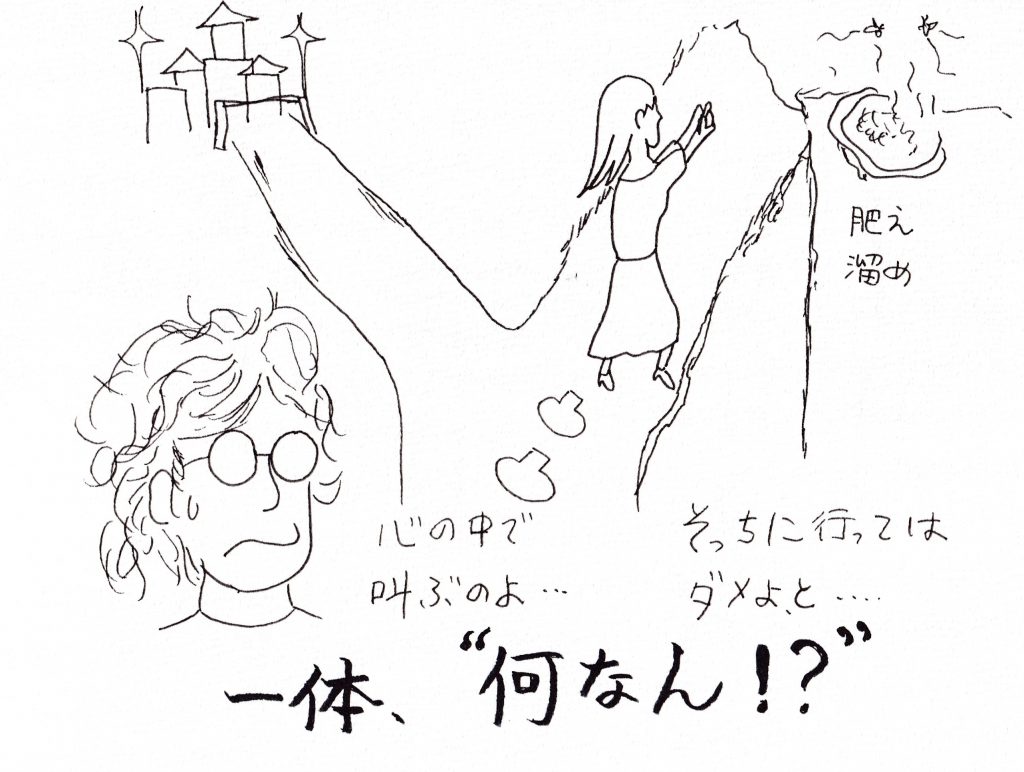 肥え
溜め
心の中で
叫ぶのよ…
そっちに行っては
ダメよ、と‥‥
一体、“何なん!?”